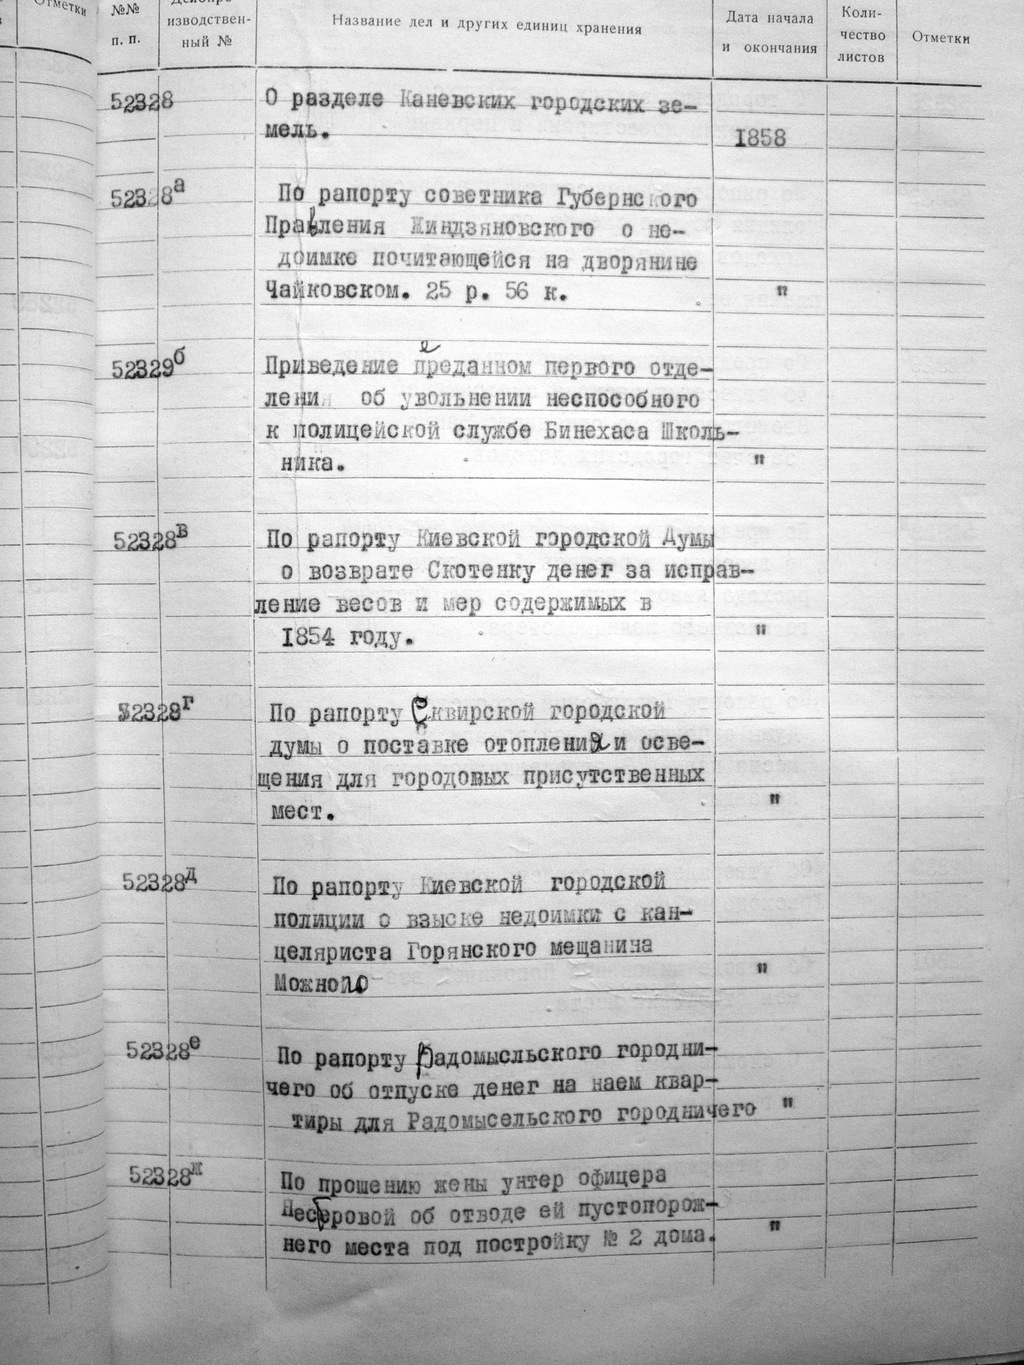 Отметки
№№
п. п.
изводствен-
ный №
Название дел и других единиц хранения
Дата начала
и окончания
Коли-
чество
листов
Отметки
52328
О разделе Каневских городских зе-
мель.
1858
52328а
По рапорту советника Губернского
Правления Жиндзяновского о не-
доимке почитающейся на дворянине
Чайковском. 25 р. 56 к.
"
52329б
Приведение преданном первого отде-
лени об увольнении неспособного
к полицейской службе Бинехаса Школь-
ника.
"
52328в
По рапорту Киевской городской Думы
о возврате Скотенку денег за исправ-
ление весов и мер содержимых в
1854 году.
"
52328г
По рапорту Сквирской городской
думы о поставке отопления и осве-
щения для городовых присутственных
мест.
"
52328д
По рапорту Киевской городской
полиции о взыске недоимки с кан-
целяриста Горянского мещанина
"
52328е
По рапорту Радомысльского городни-
чего об отпуске денег на наем квар-
тиры для Радомысельского городничего
"
52328ж
По прошению жены унтер офицера
об отводе ей пустопорож-
него места под постройку № 2 дома.
"